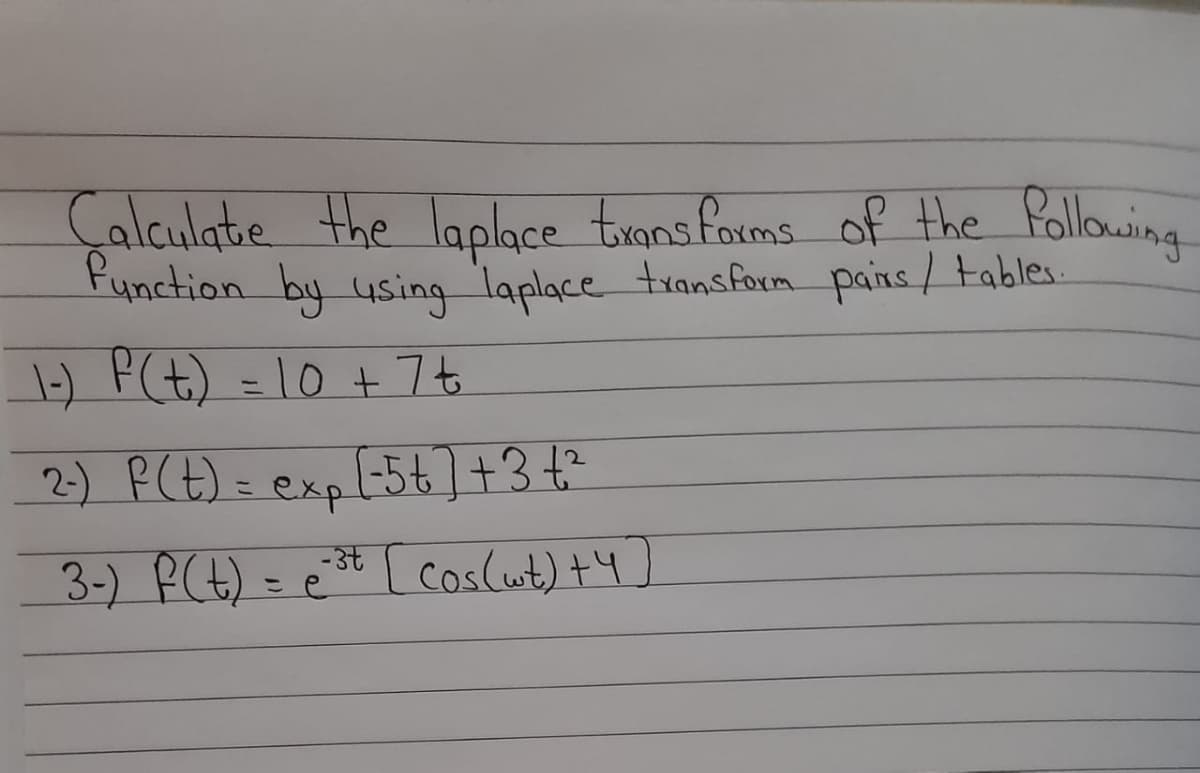 Calculate the laplace transforms of the following
function by using laplace transform pairs / tables.
1-) f(t) = 10 + 7t
2-) f(t) = exp [-5t] + 3 t²
3-) f(t) = e⁻³ᵗ [ cos(wt) + 4 ]